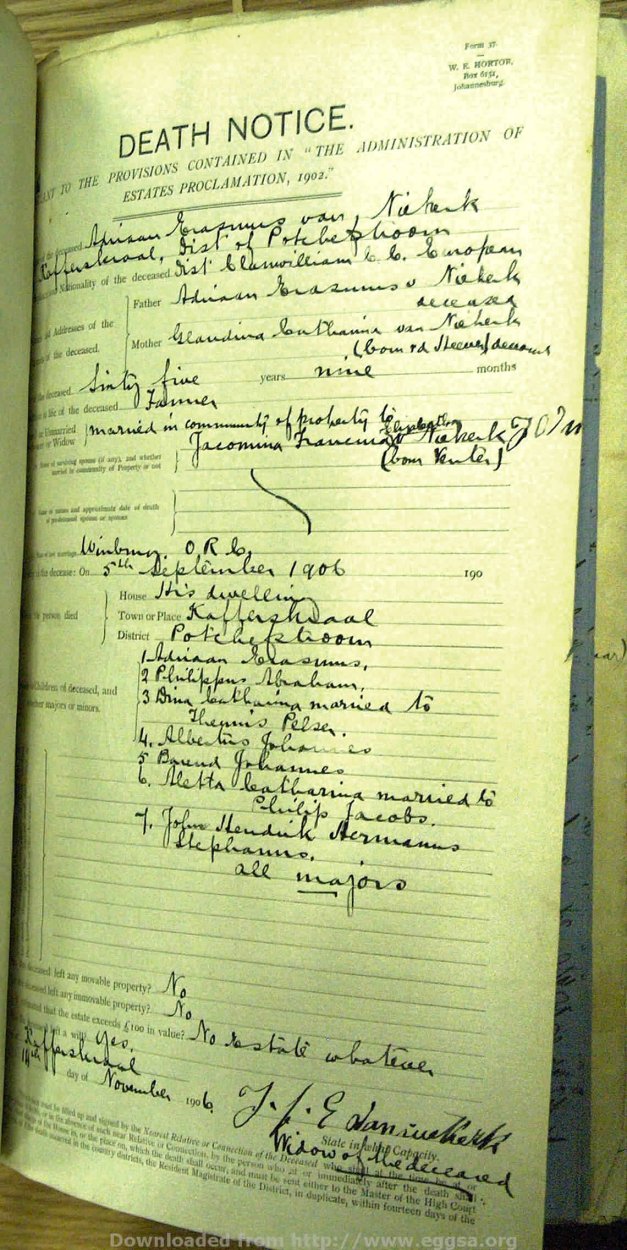 Form 37
W. E. HORTOR,
Box 6151,
Johannesburg.
DEATH NOTICE.
TO THE PROVISIONS CONTAINED IN "THE ADMINISTRATION OF
ESTATES PROCLAMATION, 1902."
deceased Adriaan Erasmus van Niekerk
Kaffirskraal, Dist of Potchefstroom
Nationality of the deceased Dist Clanwilliam C. C. European
Addresses of the
of the deceased.
Father Adriaan Erasmus v Niekerk
deceased
Mother Claudina Catharina van Niekerk
(born v d Heever) deceased
deceased Sixty five years nine months
life of the deceased Farmer
Unmarried
or Widow
married in community of property to
Elizabeth
Jacomina Francina v Niekerk
(born Venter)
of surviving spouse (if any), and whether
married in community of Property or not
names and approximate date of death
of predeceased spouse or spouses
marriage Winburg. O. R. C.
the decease: On 5th September 1906 190
person died
House His dwelling
Town or Place Kafferskraal
District Potchefstroom
Children of deceased, and
majors or minors.
1 Adriaan Erasmus,
2 Philippus Abraham,
3 Dina Catharina married to
Theunis Pelser.
4. Albertus Johannes
5 Barend Johannes
6. Aletta Catharina married to
Philip Jacobs.
7. John Hendrik Hermanus
Stephanus.
all majors
deceased left any movable property? No
deceased left any immovable property? No
that the estate exceeds £100 in value? No Estate whatever
a will? Yes.
Kafferskraal
14th day of November 1906.
J. F. E van niekerk
State in which Capacity.
Widow of the deceased
must be filled up and signed by the Nearest Relative or Connection of the Deceased who shall at the time be at or
in the absence of such near Relative or Connection, by the person who at or immediately after the death shall
of the House in, or the place on, which the death shall occur, and must be sent either to the Master of the High Court
death occurred in the country districts, the Resident Magistrate of the District, in duplicate, within fourteen days of the
Downloaded from http://www.eggsa.org